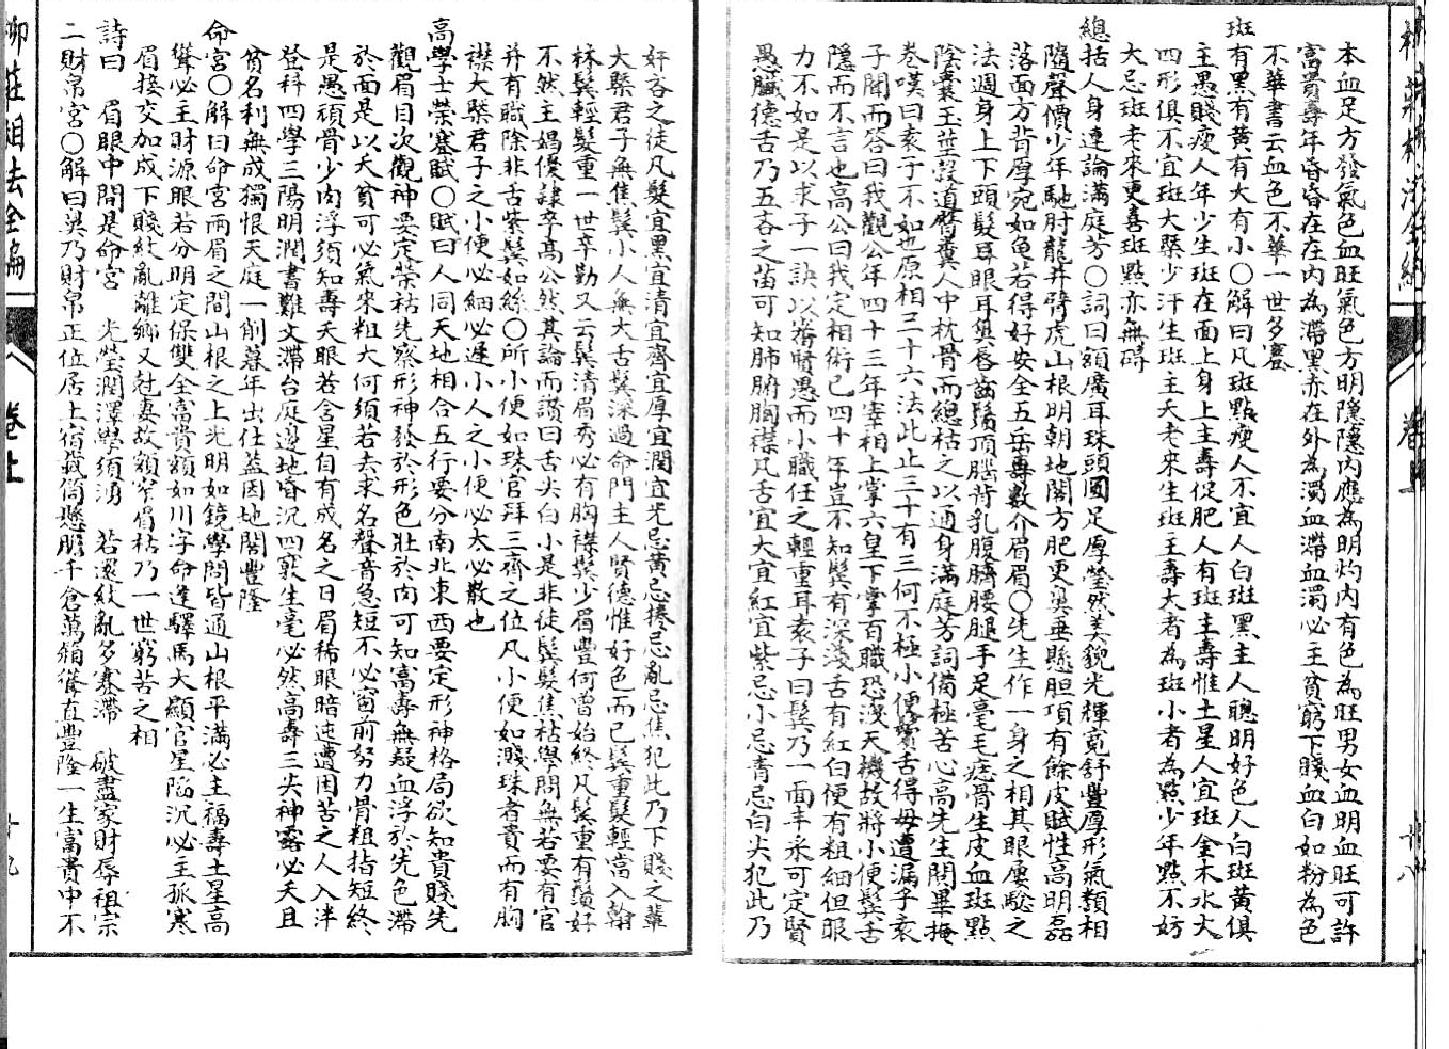 本血足方發氣色血旺氣色方明隱隱内應為明灼内有色為旺男女血明血旺可許
富貴壽年昏昏在在内為滯黑赤在外為濁血滯血濁必主貧窮下賤血白如粉為色
不華書云血色不華一世多蹇
斑有黑有黃有大有小〇解曰凡斑點瘦人不宜人白斑黑主人聰明好色人白斑黃俱
主愚賤瘦人年少生斑在面上身上主壽促肥人有斑主壽惟土星人宜斑金木水火
四形俱不宜斑大槩少汗生斑主夭老來生斑主壽大者為斑小者為點少年點不妨
大忌斑老來更喜斑點亦無碍
總括人身連論滿庭芳〇詞曰額廣耳珠頭圓足厚瑩然美貌光輝寬舒豐厚形氣類相
隨聲價少年馳肘龍并臂虎山根明朝地閣方肥更奐垂懸胆項有餘皮賦性高明磊
落面方背厚宛如龜若得好安全五岳專數介眉眉〇先生作一身之相其眼屢驗之
法週身上下頭髮耳眼耳奐唇齒鬚項腦背乳腹臍腰腿手足毫毛痣骨生皮血斑點
陰囊玉莖穀道臀糞人中枕骨而總枯之以通身滿庭芳詞備極苦心高先生閱畢掩
卷嘆曰袁子不如也原相三十六法此止三十有三何不極小便鬢舌得毋遺漏乎袁
子聞而答曰我觀公年四十三年宰相上掌六皇下掌百職恐洩天機故將小便鬢舌
隱而不言也高公曰我定相術已四十年豈不知鬢有深淺舌有紅白便有粗細但眼
力不如是以求子一訣以辨賢愚而小職任之輕重耳袁子曰鬢乃一面丰采可定賢
愚臟德舌乃五吝之苗可知肺腑胸襟凡舌宜大宜紅宜紫忌小忌青忌白尖犯此乃
奸吝之徒凡髮宜黑宜清宜齊宜厚宜潤宜光忌黃忌捲忌亂忌焦犯此乃下賤之輩
大槩君子無焦鬢小人無大舌鬢深過命門主人賢德惟好色而已鬢重髮輕當入翰
林鬢輕髮重一世辛勤又云鬢清眉秀必有胸襟鬢少眉豐何曾始終凡鬢重有鬚好
不然主娼優隸卒高公然其論而讚曰舌尖白小是非徒鬢髮焦枯學問無若要有官
并有職除非舌紫鬢如絲〇所小便如珠官拜三齊之位凡小便如濺珠者貴而有胸
襟大槩君子之小便必細必遲小人之小便必大必散也
高學士榮蹇賦〇賦曰人同天地相合五行要分南北東西要定形神格局欲知貴賤先
觀眉目次觀神要定榮枯先察形神發於形色壯於肉可知富壽無疑血浮於先色滯
於面是以夭貧可必氣來粗大何須若去求名聲音急短不必窗前努力骨粗指短終
是愚頑骨少肉浮須知壽夭眼若含星自有成名之日眉稀眼暗迍邅困苦之人入泮
登科四學三陽明潤書難文滯台庭邊地昏沉四寨生毫必然高壽三尖神露必夭且
貧名利無成獨恨天庭一削暮年出仕益因地閣豐隆
命宮〇解曰命宮兩眉之間山根之上光明如鏡學問皆通山根平滿必主福壽土星高
聳必主財源眼若分明定保雙全富貴額如川字命逢驛馬大顯官星陷沉必主孤寒
眉接交加成下賤紋亂離鄉又尅妻故額窄眉枯乃一世窮苦之相
詩曰 眉眼中間是命宮 光瑩潤澤學須湧 若還紋亂多蹇滯 破盡家財辱祖宗
二財帛宮〇解曰奐乃財帛正位居土宿截筒懸膽千倉萬箱聳直豐隆一生富貴中不
柳莊相法全編 卷上 十九
卷上 十八